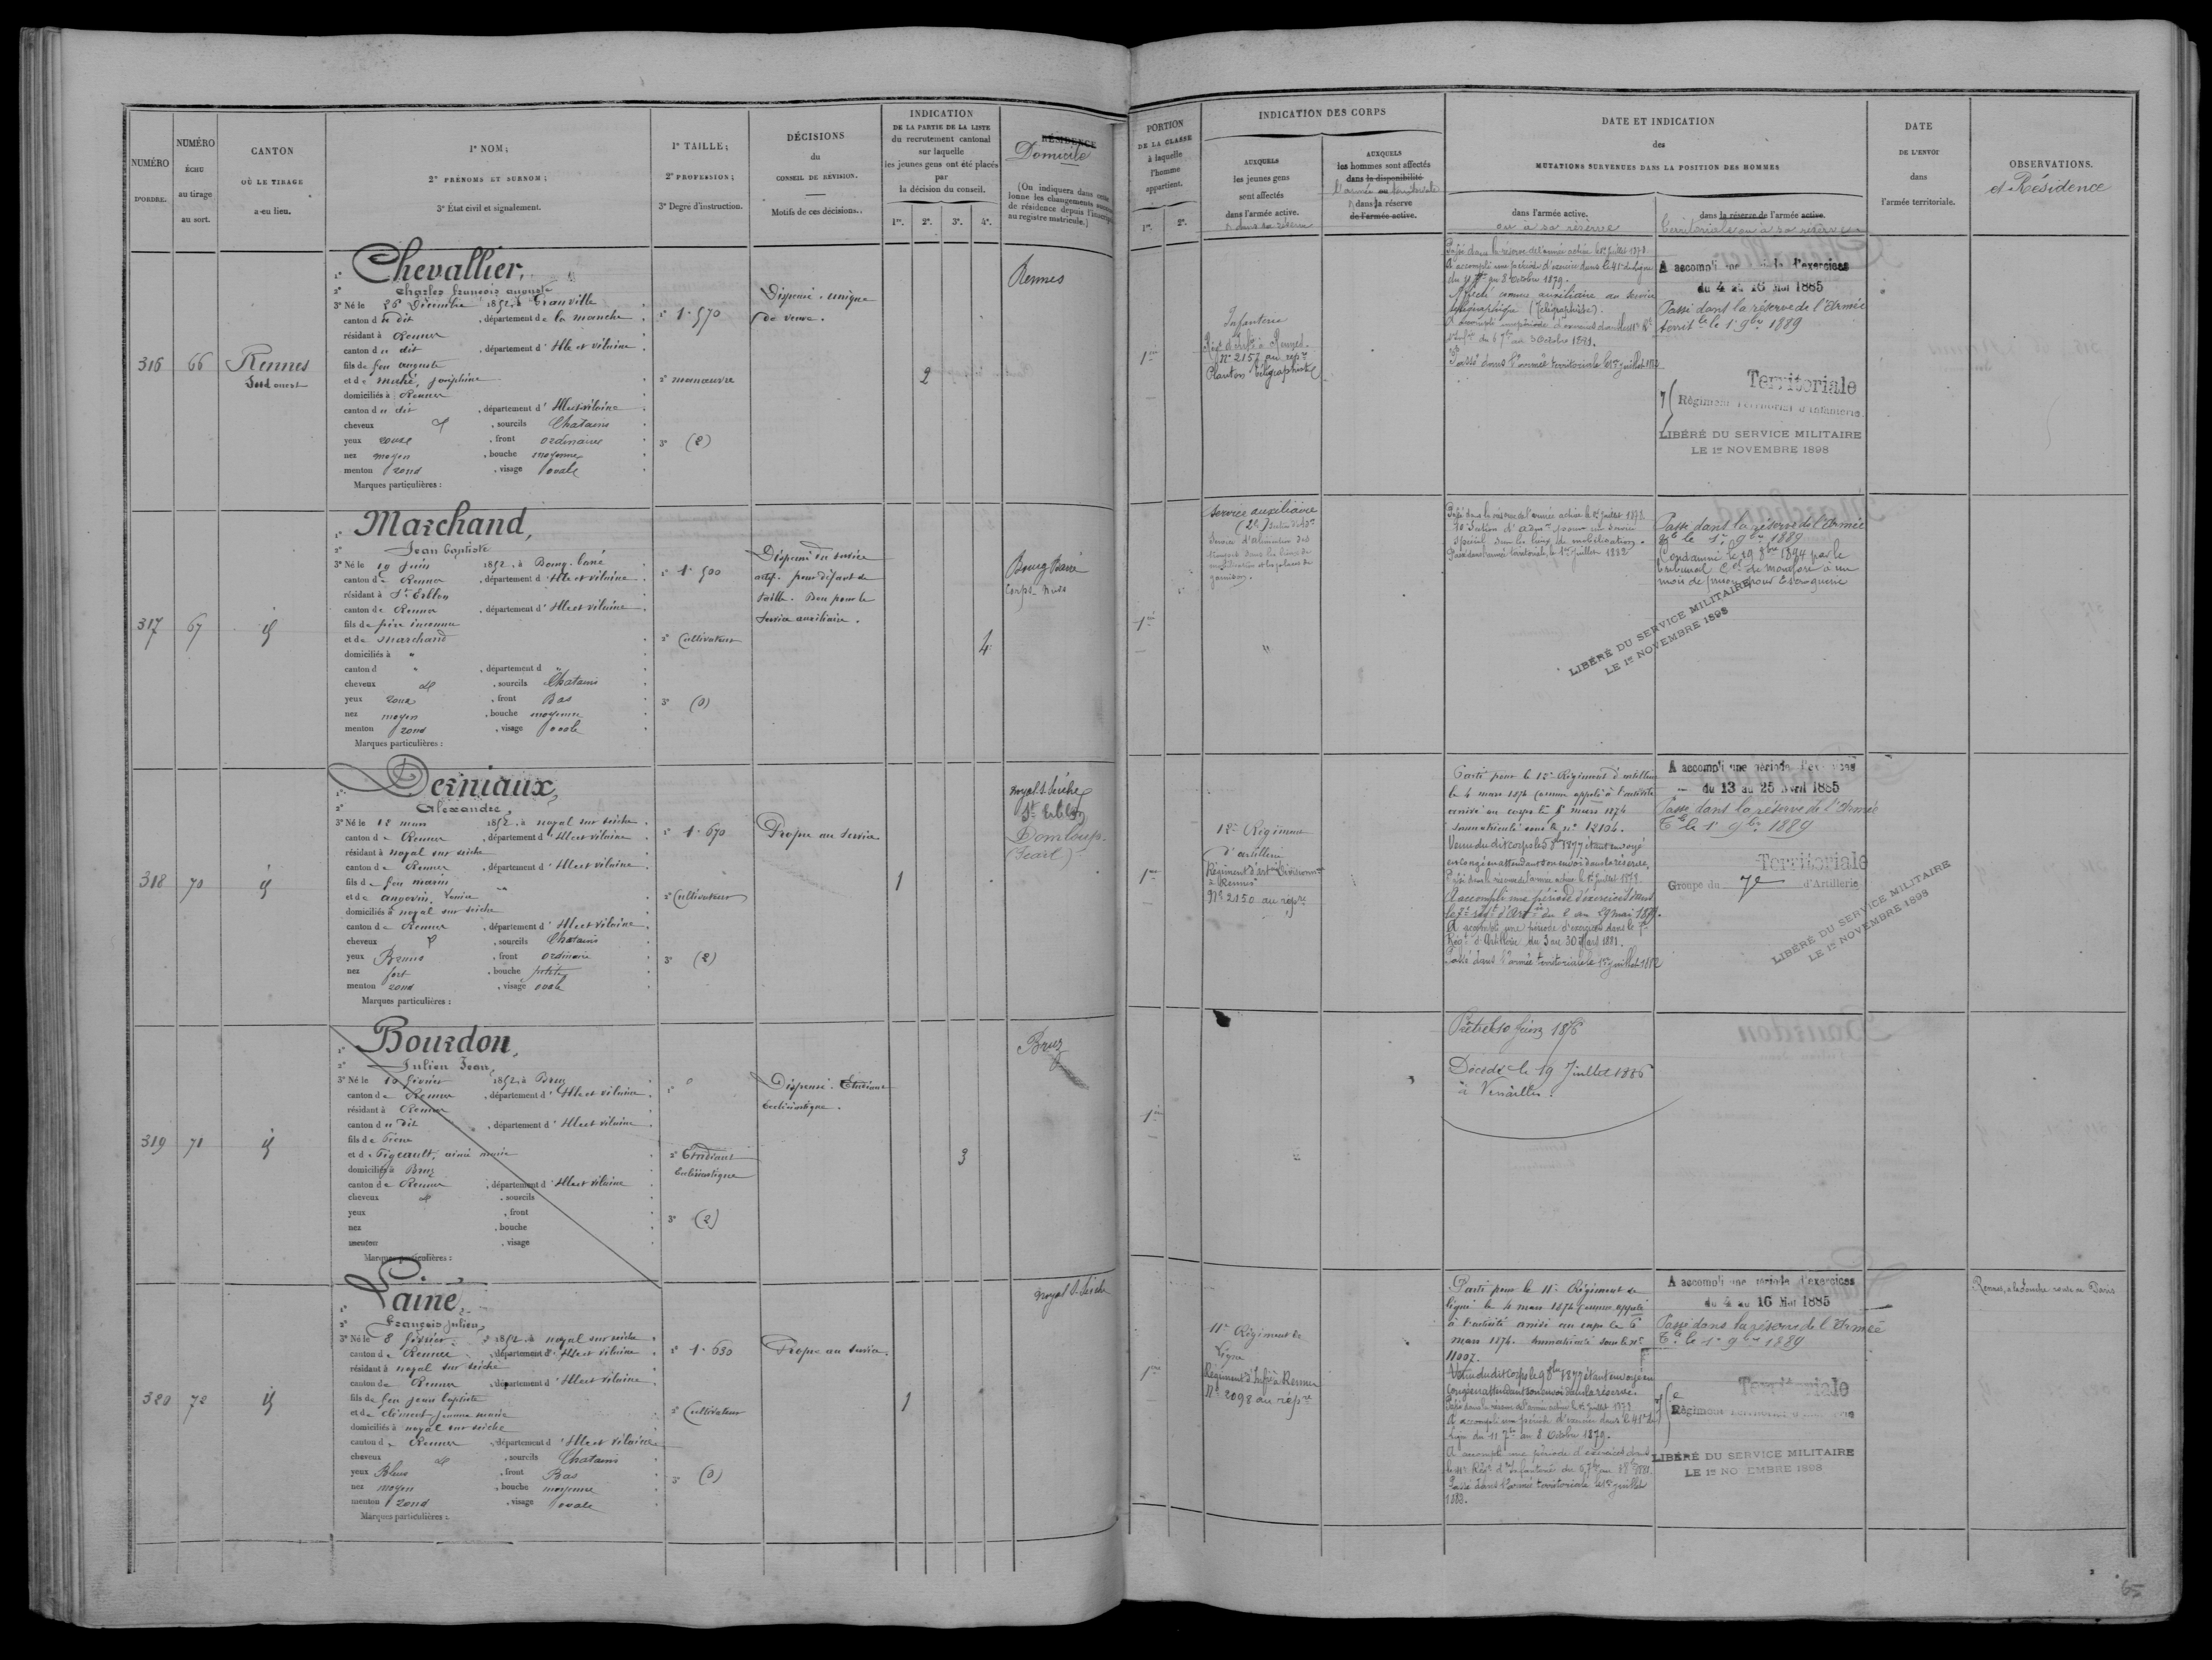 NUMÉRO
D'ORDRE.
NUMÉRO
ÉCHU
au tirage
au sort.
CANTON
OÙ LE TIRAGE
a eu lieu.
1° NOM;
2° PRÉNOMS ET SURNOM;
3° État civil et signalement.
1° TAILLE;
2° PROFESSION;
3° Degré d'instruction.
DÉCISIONS
du
CONSEIL DE RÉVISION.
Motifs de ces décisions.
INDICATION
DE LA PARTIE DE LA LISTE
du recrutement cantonal
sur laquelle
les jeunes gens ont été placés
par
la décision du conseil.
1re. 2e. 3e. 4e.
RÉSIDENCE
Domicile
(On indiquera dans cette
lonne les changements
de résidence depuis
au registre matricule.)
PORTION
DE LA CLASSE
à laquelle
l'homme
appartient.
1re. 2e.
INDICATION DES CORPS
AUXQUELS
les jeunes gens
sont affectés
dans l'armée active.
AUXQUELS
les hommes sont affectés
dans la disponibilité
l'armée territoriale
dans la réserve
de l'armée active.
DATE ET INDICATION
des
MUTATIONS SURVENUES DANS LA POSITION DES HOMMES
dans l'armée active.
ou à sa réserve
dans la réserve de l'armée active.
territoriale ou à sa réserve
DATE
DE L'ENVOI
dans
l'armée territoriale.
OBSERVATIONS.
et Résidence
316
66
Rennes
Sud ouest
1° Chevallier,
2° Charles françois auguste
3° Né le 26 Décembre 1852, à Granville
canton du dit, département de la manche
résidant à Rennes
canton du dit, département d'Ille et vilaine
fils de feu auguste
et de Joséphine
domiciliés à Rennes
canton du dit, département d'Ille et vilaine
cheveux, sourcils Chatains
yeux roux, front ordinaire
nez moyen, bouche moyenne
menton rond, visage ovale
Marques particulières :
1° 1.570
2° manœuvre
3° (2)
Dispensé. unique
de veuve.
2
Rennes
1re
Infanterie
Régt d'infie à Rennes
N° 2157 au repre
Planton télégraphiste
Passé dans la réserve de l'armée active le 1er Juillet 1878
A accompli une période d'exercice dans le 41e de ligne
du 11 7bre au 8 Octobre 1879.
Affecté comme auxiliaire au service
télégraphique (Télégraphiste).
Passé dans l'armée territoriale le 1er juillet 1882
A accompli une période d'exercices
du 4 au 16 Mai 1885
Passé dans la réserve de l'Armée
territle le 1er 9bre 1889
Territoriale
Régiment Territorial d'Infanterie.
LIBÉRÉ DU SERVICE MILITAIRE
LE 1er NOVEMBRE 1898
317
67
id
1° Marchand,
2° Jean baptiste
3° Né le 19 Juin 1852, à Bourg-barré
canton de Rennes, département d'Ille et vilaine
résidant à St Erblon
canton de Rennes, département d'Ille et vilaine
fils de père inconnu
et de Marchand
domiciliés à "
canton d ", département d "
cheveux, sourcils Chatains
yeux roux, front Bas
nez moyen, bouche moyenne
menton rond, visage ovale
Marques particulières :
1° 1.500
2° Cultivateur
3° (0)
Dispensé du service
actif. pour défaut de
taille. Bon pour le
Service auxiliaire.
4
Bourg Barré
Corps-Nuds
1re
Service auxiliaire
Passé dans la réserve de l'armée active le 1er Juillet 1878.
10e Section d'admon pour un service
spécial dans les lieux de mobilisation.
Passé dans l'armée territoriale, le 1er juillet 1882
Passé dans la réserve de l'Armée
le 1er 9bre 1889
Condamné le 19 8bre 1894 par le
tribunal de Montfort à un
mois de prison pour Escroquerie
LIBÉRÉ DU SERVICE MILITAIRE
LE 1er NOVEMBRE 1898
318
70
id
1° Derniaux,
2° Alexandre,
3° Né le 18 mars 1852, à noyal sur seiche
canton de Rennes, département d'Ille et vilaine
résidant à noyal sur seiche
canton de Rennes, département d'Ille et vilaine
fils de feu marin
et de angevin,
domiciliés à noyal sur seiche
canton de Rennes, département d'Ille et vilaine
cheveux, sourcils Chatains
yeux Bruns, front ordinaire
nez fort, bouche petite
menton rond, visage ovale
Marques particulières :
1° 1.670
2° Cultivateur
3° (2)
Propre au service
1
noyal S. Seiche
St Erblon
Domloup.
1re
12e Régiment
d'artillerie
Régiment d'artie Divisionre
à Rennes
N° 2150 au repre
Parti pour le 12e Régiment d'artillerie
le 4 mars 1874 Comme appelé à l'activité
arrivé au corps le 8 mars 1874
immatriculé sous le n° 12104.
Venu du dit corps le 5 8bre 1877 étant envoyé
en congé en attendant son envoi dans la réserve.
Passé dans la réserve de l'armée active le 1er Juillet 1878
A accompli une période d'exercices dans
le 7e régt d'Artie du 2 au 29 mai 1879.
A accompli une période d'exercices dans le 7e
Régt d'Artillerie du 3 au 30 Mars 1881.
Passé dans l'armée territoriale le 1er juillet 1882
A accompli une période d'exercices
du 13 au 25 Avril 1885
Passé dans la réserve de l'Armée
Tle le 1er 9bre 1889
Territoriale
Groupe du 7e d'Artillerie
LIBÉRÉ DU SERVICE MILITAIRE
LE 1er NOVEMBRE 1898
319
71
id
1° Bourdon,
2° Julien Jean,
3° Né le 10 février 1852, à Bruz
canton de Rennes, département d'Ille et vilaine
résidant à Rennes
canton du dit, département d'Ille et vilaine
fils de Pierre
et de Tigeault, aimée marie
domiciliés à Bruz
canton de Rennes, département d'Ille et vilaine
cheveux, sourcils
yeux, front
nez, bouche
menton, visage
Marques particulières :
2° Etudiant
Ecclésiastique
3° (2)
Dispensé. Etudiant
Ecclésiastique.
3
Bruz
1re
Prêtre le 10 Juin 1876
Décédé le 19 Juillet 1886
à Versailles.
320
72
id
1° Lainé,
2° François Julien,
3° Né le 8 février 1852, à noyal sur seiche
canton de Rennes, département d'Ille et vilaine
résidant à noyal sur seiche
canton de Rennes, département d'Ille et vilaine
fils de feu jean baptiste
et de Clément jeanne marie
domiciliés à noyal sur seiche
canton de Rennes, département d'Ille et vilaine
cheveux, sourcils Chatains
yeux Bleus, front Bas
nez moyen, bouche moyenne
menton rond, visage ovale
Marques particulières :
1° 1.630
2° Cultivateur
3° (0)
Propre au service.
1
Noyal S. Seiche
1re
11e Régiment de
Ligne
Régiment d'Infie à Rennes
N° 2098 au repre
Parti pour le 11e Régiment de
ligne le 4 mars 1874 Comme appelé
à l'activité arrivé au corps le 6
mars 1874. Immatriculé sous le n°
11007.
Venu du dit corps le 9 8bre 1877 étant envoyé en
Congé en attendant son envoi dans la réserve.
Passé dans la réserve de l'armée active le 1er Juillet 1878
A accompli une période d'exercices dans le 41e de
ligne du 11 7bre au 8 Octobre 1879.
A accompli une période d'exercices dans
Passé dans l'armée territoriale le 1er juillet
1882.
A accompli une période d'exercices
du 4 au 16 Mai 1885
Passé dans la réserve de l'Armée
Tle le 1er 9bre 1889
Territoriale
LIBÉRÉ DU SERVICE MILITAIRE
LE 1er NOVEMBRE 1898
Rennes, route de Paris
65